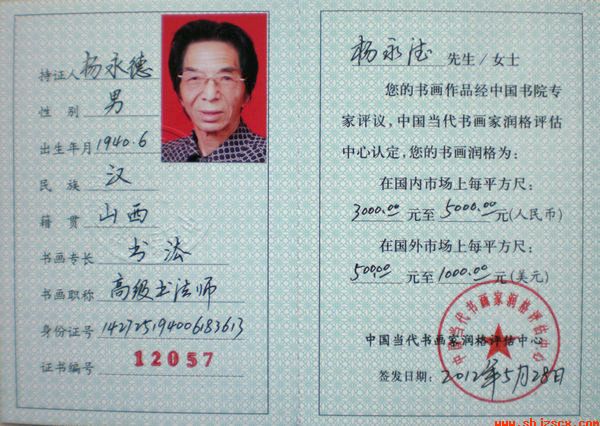 持证人 杨永德
性 别 男
出生年月 1940.6
民 族 汉
籍 贯 山西
书画专长 书法
书画职称 高级书法师
身份证号 142725194006183613
证书编号 12057
杨永德 先生/女士
您的书画作品经中国书院专
家评议,中国当代书画家润格评估
中心认定,您的书画润格为:
在国内市场上每平方尺:
3000.00 元至 5000.00 元(人民币)
在国外市场上每平方尺:
500.00 元至 1000.00 元(美元)
中国当代书画家润格评估中心
中国当代书画家润格评估中心
签发日期: 2012年5月28日
www.shjzscx.com